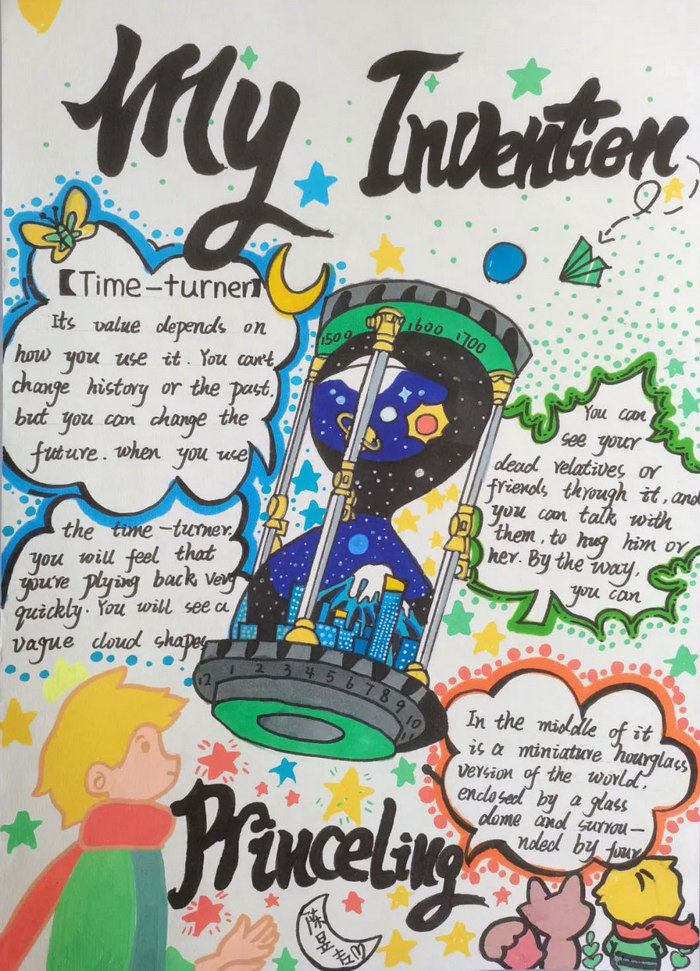 My Invention
【Time-turner】
Its value depends on
how you use it. You can't
change history or the past,
but you can change the
future. when you use
the time-turner,
you will feel that
you're plying back very
quickly. You will see a
vague cloud shapes
1500 1600 1700
12 1 2 3 4 5 6 7 8 9 10 11
You can
see your
dead relatives or
friends through it, and
you can talk with
them, to hug him or
her. By the way,
you can
In the middle of it
is a miniature hourglass
version of the world,
enclosed by a glass
dome and surrou-
nded by four
Princeling
陈昱